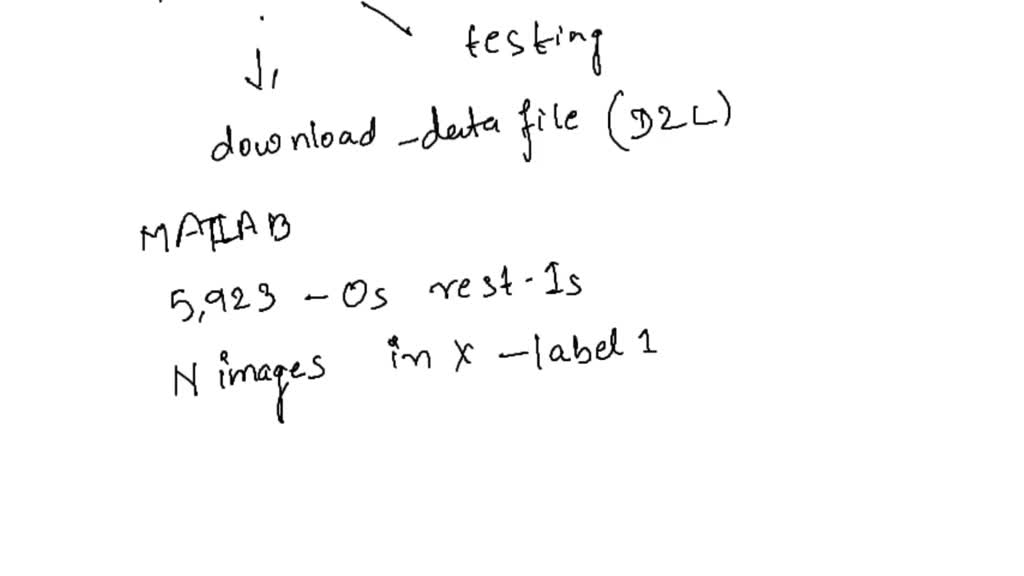 testing
download - data file (D2L)
MATLAB
5,923 - 0s rest - 1s
N images in X - label 1